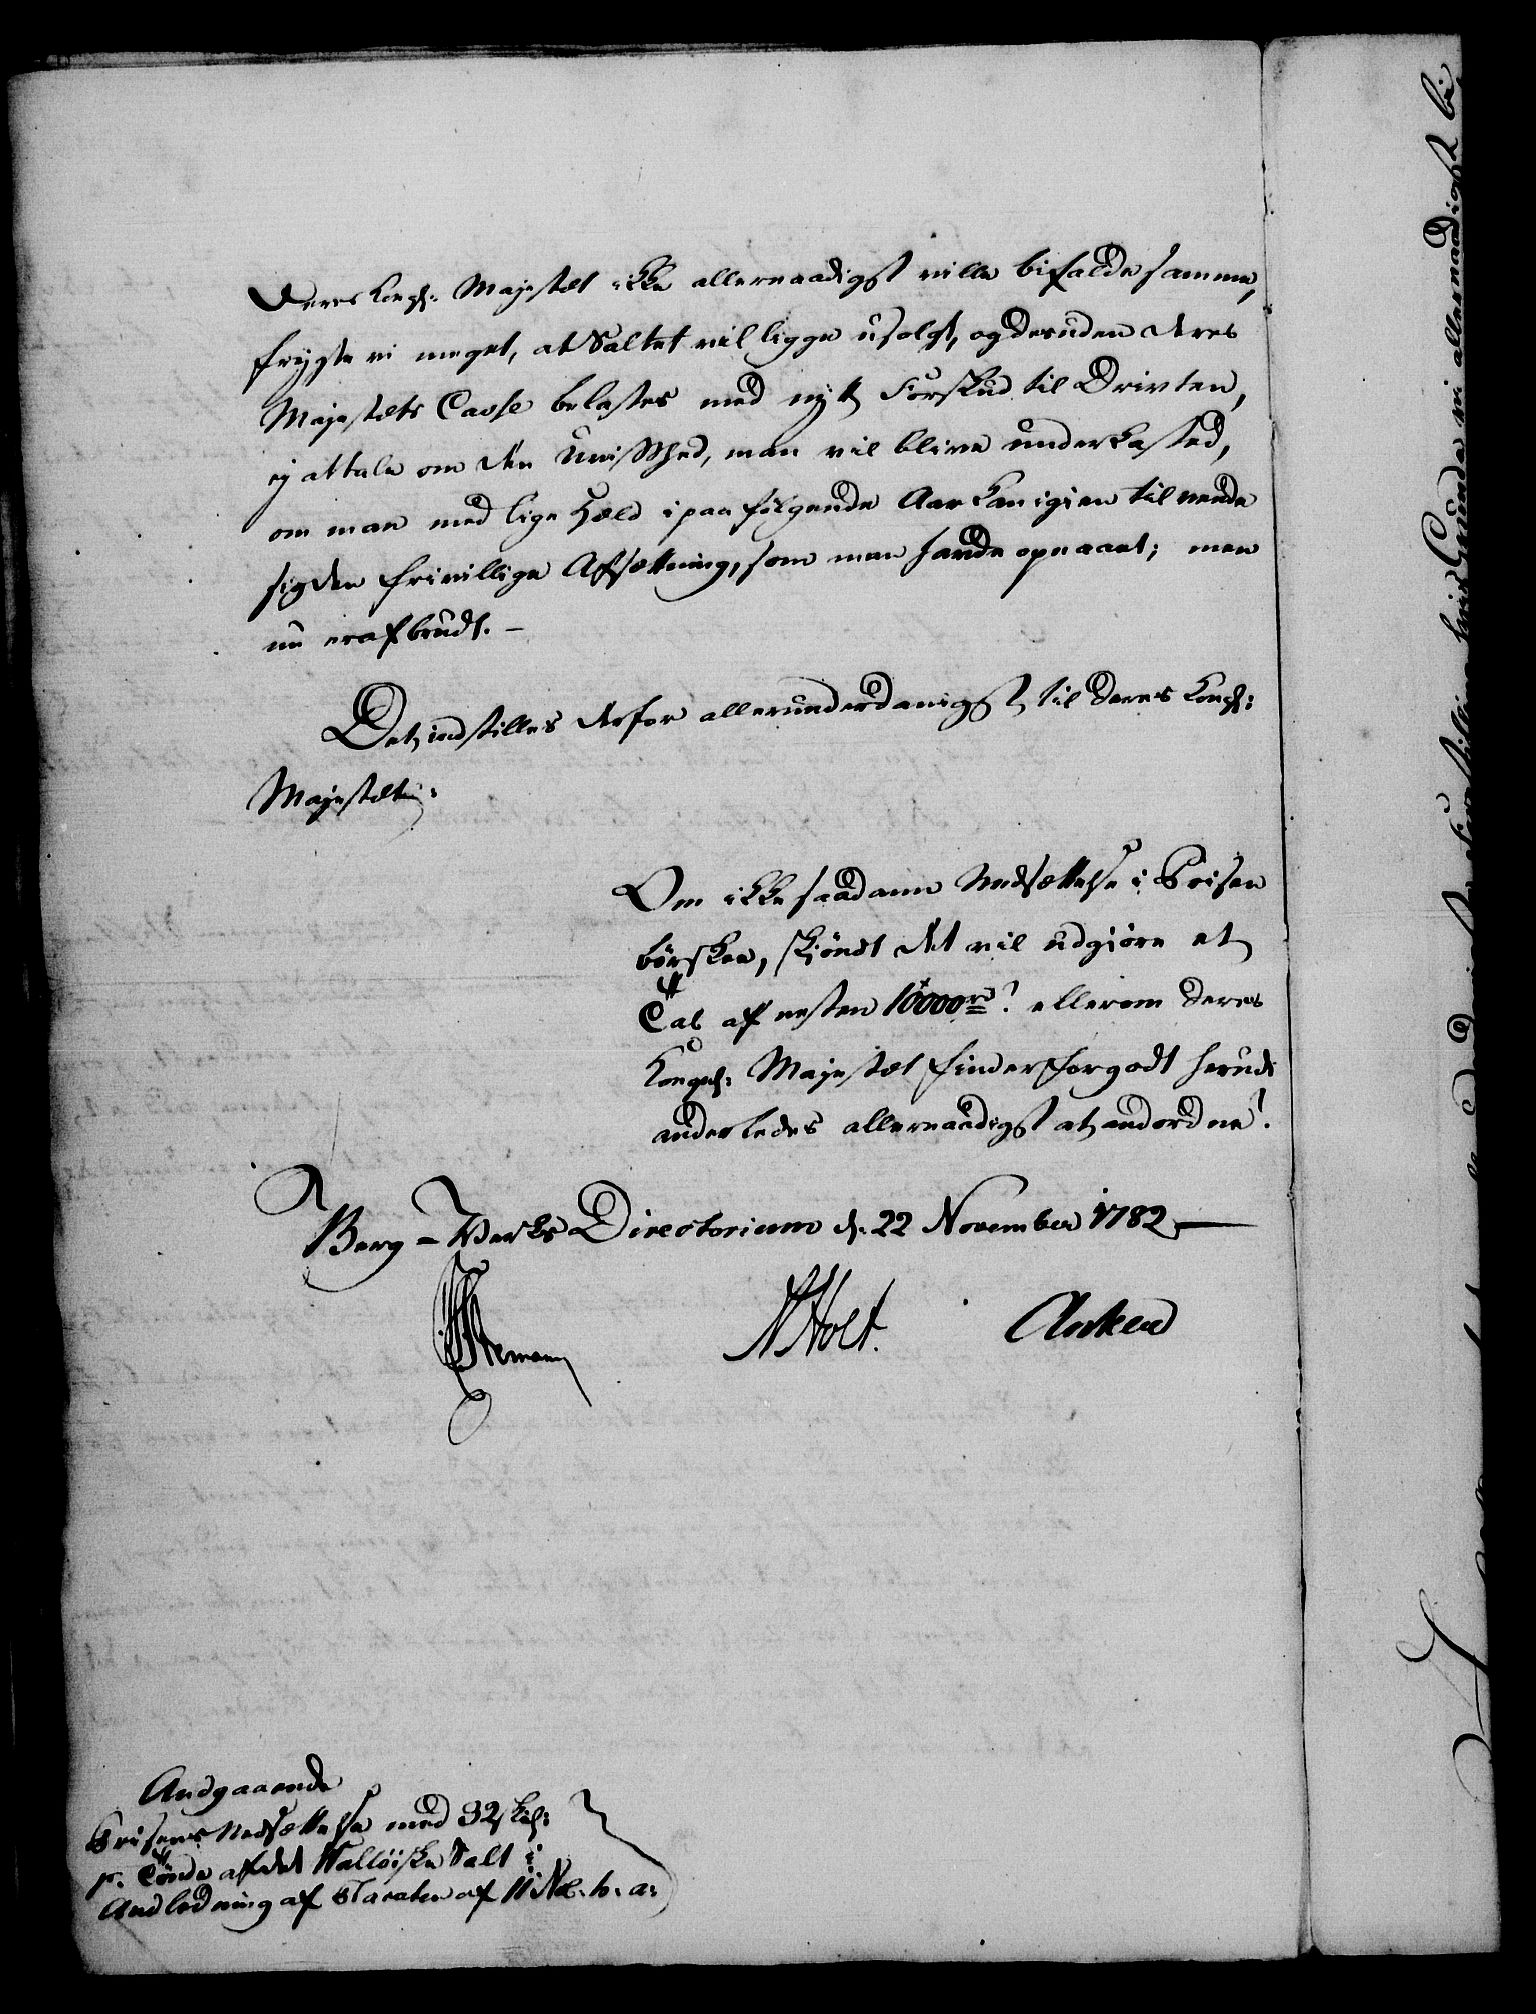 Deres Kongl: Majestæt ikke allernaadigst ville bifalde samme,
frygte vi meget, at Saltet vil ligge usolgt, og desuden Deres
Majestæts Casse belastes med nytt Forskud til Drivten,
ej at tale om den Uvisshed, man vil blive underkasted,
om man med lige Held i paafølgende Aar kan igien tilvende
sig den frivillige Afsættning, som man havde opnaaet; men
nu er afbrudt. –
Det indstilles derfor allerunderdanigst til Deres Kongl:
Majestæt:
Om ikke saadann Nedsættelse i Prisen
bør skee, skjøndt det vil udgiøre et
Tab af nesten 10000 rd? eller om Deres
Kongel: Majestæt finder for godt herudi
anderledes allernaadigst at andordne?
Berg-Verks Directorium d: 22 November 1782
Stemann
Holt.
Anker
Andgaaende
Prisens Nedsættelse med 32 skil:
pr. Tønde af det Walløiske Salt i
Andledning af Placaten af 11 Nob. h. a:
vi allernaadigst bi